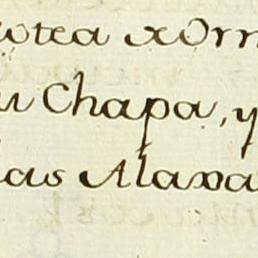 iotea xorn
u Chapa, y
las Alaxa